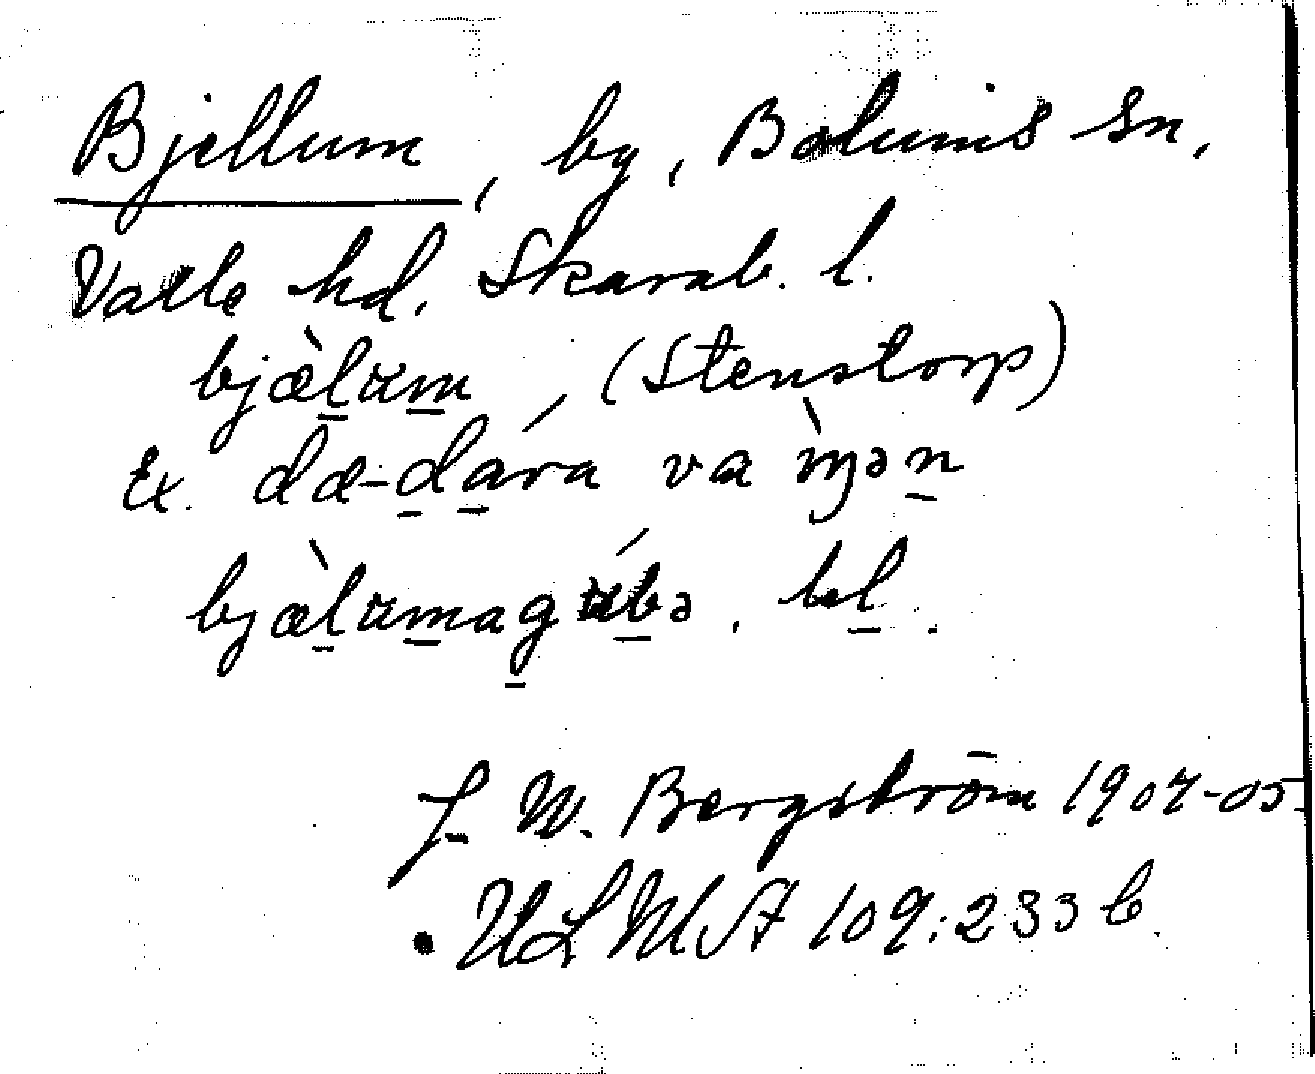 Bjellum, by, Bolums sn,
Valle hd. Skarab. l.
bjæ̀lum, (Stenstorp)
Ex. dæ-dára va
bl.
J. W. Bergström 1904-05
ULMA 109:233 b.